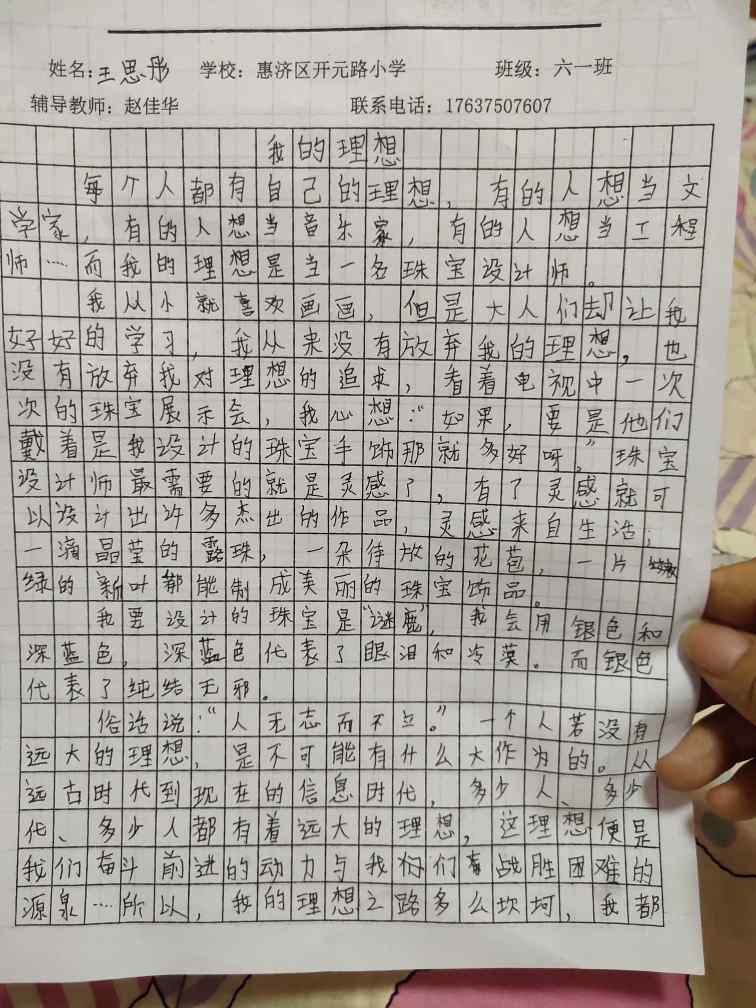 姓名:王思彤 学校:惠济区开元路小学 班级:六一班
辅导教师:赵佳华 联系电话:17637507607
我的理想
每个人都有自己的理想,有的人想当文
学家,有的人想当音乐家,有的人想当工程
师……而我的理想是当一名珠宝设计师。
我从小就喜欢画画,但是大人们却让我
好好的学习,我从来没有放弃我的理想,也
没有放弃我对理想的追求,看着电视中一次
次的珠宝展示会,我心想:“如果,要是他们
戴着是我设计的珠宝手饰那就多好呀,”珠宝
设计师最需要的就是灵感了,有了灵感就可
以设计出许多杰出的作品,灵感来自生活;
一滴晶莹的露珠,一朵待放的花苞,一片
绿的新叶都能制成美丽的珠宝饰品。
我要设计的珠宝是“谜鹿”,我会用银色和
深蓝色,深蓝色代表了眼泪和冷莫。而银色
代表了纯结无邪。
俗话说:“人无志而不立。”一个人若没有
远大的理想,是不可能有什么大作为的。从
远古时代到现在的信息时代,多少人、多少
代、多少人都有着远大的理想,这理想便是
我们奋斗前进的动力与我们战胜困难的
源泉……所以,我的理想之路多么坎坷,我都